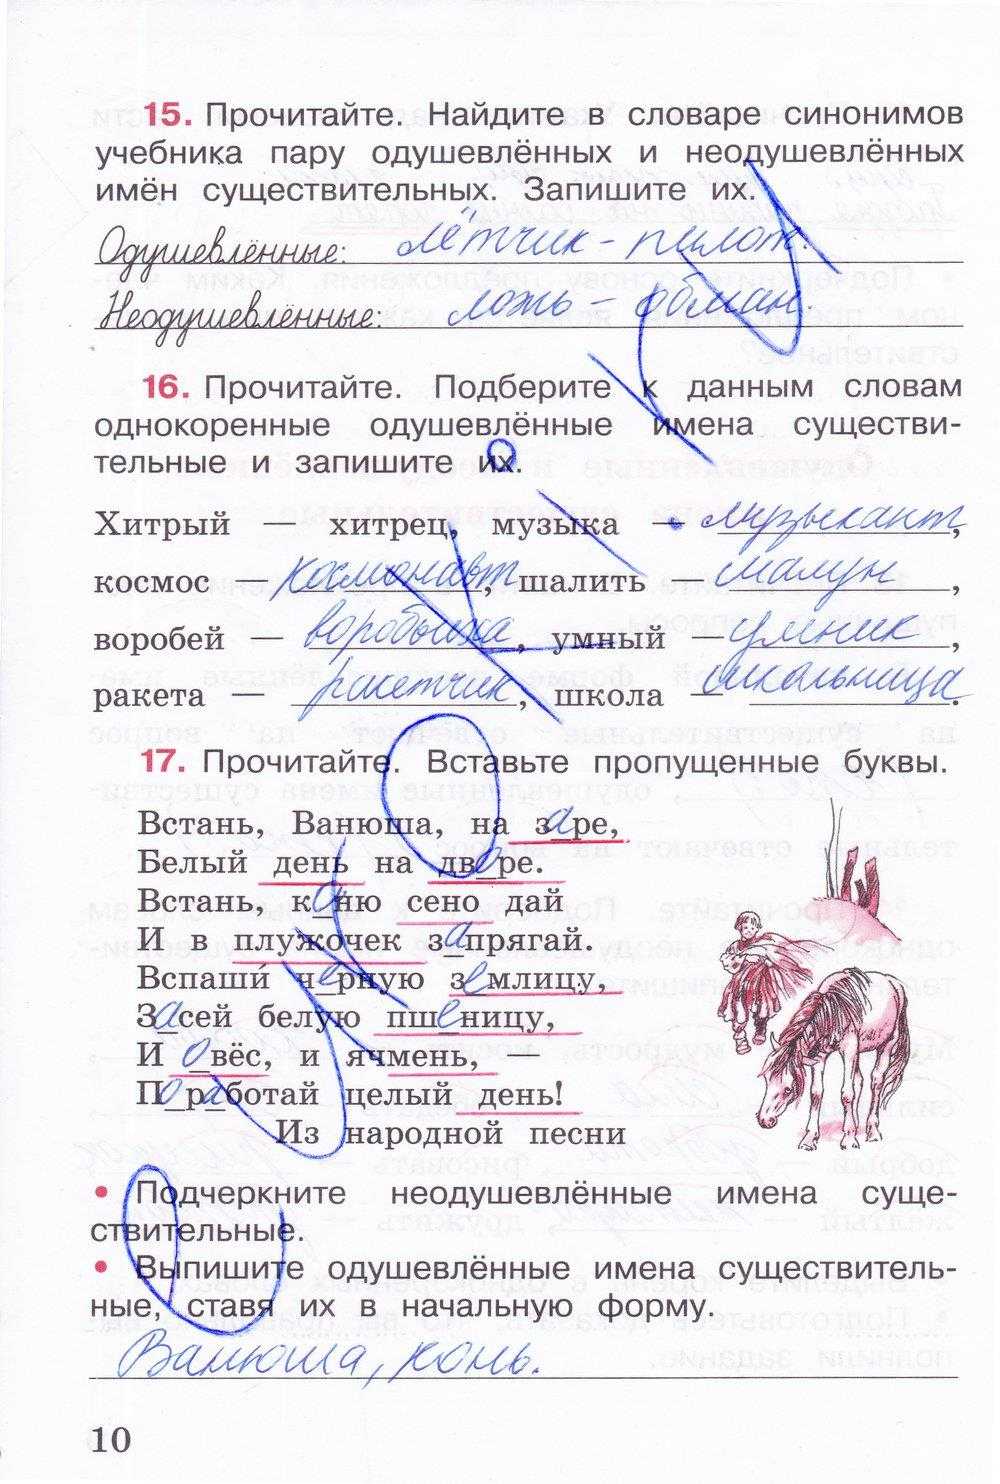 15. Прочитайте. Найдите в словаре синонимов
учебника пару одушевлённых и неодушевлённых
имён существительных. Запишите их.
Одушевлённые: лётчик - пилот.
Неодушевлённые: ложь - обман.
16. Прочитайте. Подберите к данным словам
однокоренные одушевлённые имена существи-
тельные и запишите их.
Хитрый — хитрец, музыка — музыкант,
космос — космонавт, шалить — шалун,
воробей — воробьиха, умный — умник,
ракета — ракетчик, школа — школьница.
17. Прочитайте. Вставьте пропущенные буквы.
Встань, Ванюша, на заре,
Белый день на дворе.
Встань, коню сено дай
И в плужочек запрягай.
Вспаши́ чёрную землицу,
Засей белую пшеницу,
И овёс, и ячмень, —
Поработай целый день!
Из народной песни
• Подчеркните неодушевлённые имена суще-
ствительные.
• Выпишите одушевлённые имена существитель-
ные, ставя их в начальную форму.
Ванюша, конь.
10